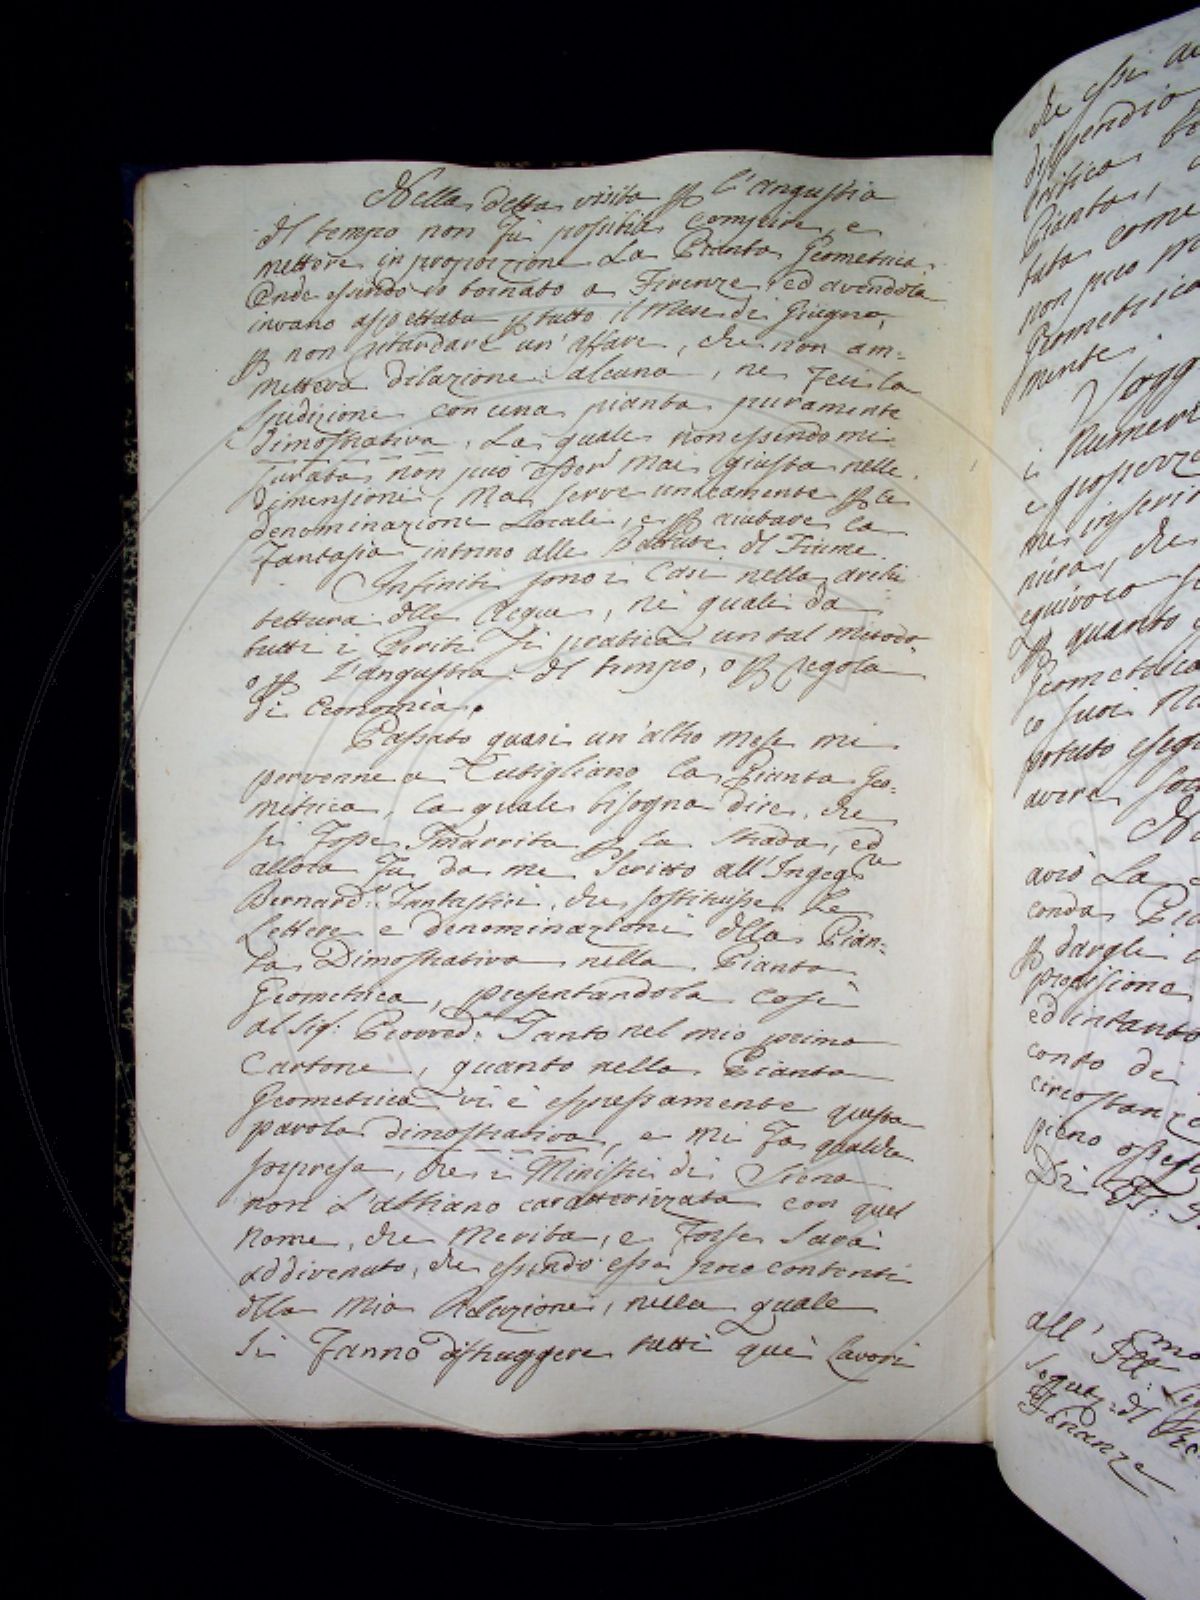 Nella detta visita p l'angustia
del tempo non fu possibil compire, e
mettere in proporzione La Pianta Geometrica.
Onde essendo io tornato a Firenze, ed avendola
invano aspettata p tutto il Mese di Giugno,
p non ritardare un'affare, che non am-
metteva dilazione alcuna, ne feci la
spedizione con una pianta puramente
dimostrativa, La quale non essendo mi-
surata non può esser mai giusta nelle
dimensioni, ma serve unicamente p le
denominazione Locali, e p aiutare la
fantasia intorno alle Battute del Fiume.
Infiniti sono i Casi nella archi
tettura delle Acque, ne quali da
tutti i Periti si pratica un tal metodo
o p L'angustia del tempo, o p regola
di Economia.
Passato quasi un'altro mese mi
pervenne a Cutigliano la Pianta Geo-
metrica, la quale bisogna dire, che
si fosse smarrita p la strada, ed
allora fu da me scritto all'Ingegre
Bernard.o Fantastici, che sostituisse Le
Lettere e denominazioni della Pian-
ta Dimostrativa nella Pianta
Geometrica, presentandola così
al Sig. Provved.re Tanto nel mio primo
Cartone, quanto nella Pianta
Geometrica vi è espressamente questa
parola dimostrativa, e mi fa qualche
sorpresa, che i Ministri di Siena
non L'abbiano caratterizzata con quel
Nome, che Merita, e forse sarà
addivenuto, che essendo essi poco contenti
della mia Relazione, nella quale
si fanno distruggere tutti que' Lavori
che essi
dispendio
critica
Pianta,
tata come
non può
Geometrica
mente.
i Numeri
e grossezze
me inserir
niera, che
equivoco
p quanto
Geometrica
co suoi
potuto eseg
avere
avrò La
conda Pia
p dargli
precisione
ed intanto
conto di
circostanz
pieno osseq
all' Ill:mo
Finanze